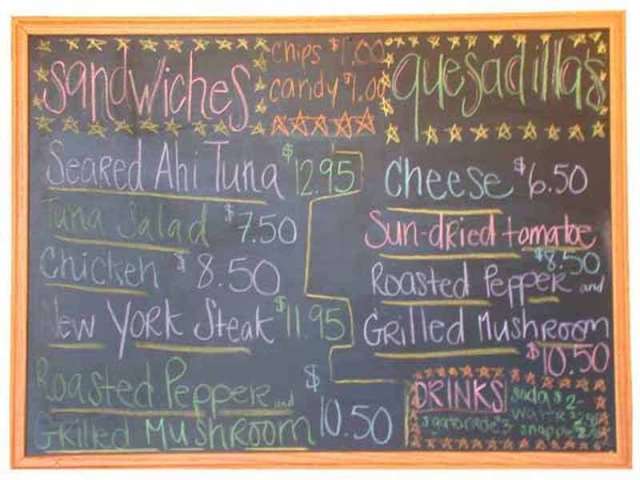 Sandwiches
chips $1.00
candy $1.00
quesadilla's
Seared Ahi Tuna $12.95
Tuna Salad $7.50
Chicken $8.50
New York Steak $11.95
Roasted Pepper and
Grilled Mushroom $10.50
Cheese $6.50
Sun-dried tomatoe
$8.50
Roasted Pepper and
Grilled Mushroom
$10.50
DRINKS
soda $2-